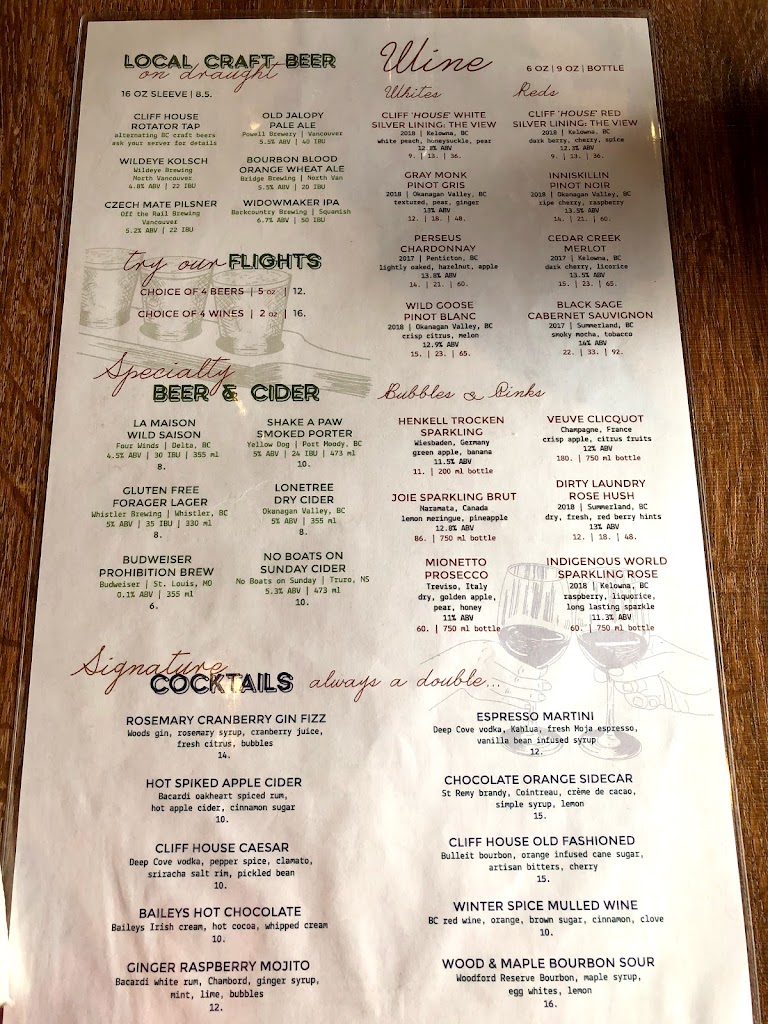 LOCAL CRAFT BEER
on draught
16 OZ SLEEVE | 8.5.
CLIFF HOUSE
ROTATOR TAP
alternating BC craft beers
ask your server for details
WILDEYE KOLSCH
Wildeye Brewing
North Vancouver
4.8% ABV | 22 IBU
CZECH MATE PILSNER
Off the Rail Brewing
Vancouver
5.2% ABV | 22 IBU
OLD JALOPY
PALE ALE
Powell Brewery | Vancouver
5.5% ABV | 40 IBU
BOURBON BLOOD
ORANGE WHEAT ALE
Bridge Brewing | North Van
5.5% ABV | 20 IBU
WIDOWMAKER IPA
Backcountry Brewing | Squamish
6.7% ABV | 50 IBU
try our FLIGHTS
CHOICE OF 4 BEERS | 5 OZ | 12.
CHOICE OF 4 WINES | 2 OZ | 16.
Specialty
BEER & CIDER
LA MAISON
WILD SAISON
Four Winds | Delta, BC
4.5% ABV | 30 IBU | 355 ml
8.
GLUTEN FREE
FORAGER LAGER
Whistler Brewing | Whistler, BC
5% ABV | 35 IBU | 330 ml
8.
BUDWEISER
PROHIBITION BREW
Budweiser | St. Louis, MO
0.1% ABV | 355 ml
6.
SHAKE A PAW
SMOKED PORTER
Yellow Dog | Port Moody, BC
5% ABV | 24 IBU | 473 ml
10.
LONETREE
DRY CIDER
Okanagan Valley, BC
5% ABV | 355 ml
8.
NO BOATS ON
SUNDAY CIDER
No Boats on Sunday | Truro, NS
5.3% ABV | 473 ml
10.
Wine
6 OZ | 9 OZ | BOTTLE
Whites
CLIFF 'HOUSE' WHITE
SILVER LINING: THE VIEW
2018 | Kelowna, BC
white peach, honeysuckle, pear
12.8% ABV
9. | 13. | 36.
GRAY MONK
PINOT GRIS
2018 | Okanagan Valley, BC
textured, pear, ginger
13% ABV
12. | 18. | 48.
PERSEUS
CHARDONNAY
2017 | Penticton, BC
lightly oaked, hazelnut, apple
13.8% ABV
14. | 21. | 60.
WILD GOOSE
PINOT BLANC
2018 | Okanagan Valley, BC
crisp citrus, melon
12.9% ABV
15. | 23. | 65.
Reds
CLIFF 'HOUSE' RED
SILVER LINING: THE VIEW
2018 | Kelowna, BC
dark berry, cherry, spice
12.3% ABV
9. | 13. | 36.
INNISKILLIN
PINOT NOIR
2018 | Okanagan Valley, BC
ripe cherry, raspberry
13.5% ABV
14. | 21. | 60.
CEDAR CREEK
MERLOT
2017 | Kelowna, BC
dark cherry, licorice
13.5% ABV
15. | 23. | 65.
BLACK SAGE
CABERNET SAUVIGNON
2017 | Summerland, BC
smoky mocha, tobacco
14% ABV
22. | 33. | 92.
Bubbles & Pinks
HENKELL TROCKEN
SPARKLING
Wiesbaden, Germany
green apple, banana
11.5% ABV
11. | 200 ml bottle
JOIE SPARKLING BRUT
Naramata, Canada
lemon meringue, pineapple
12.8% ABV
86. | 750 ml bottle
MIONETTO
PROSECCO
Treviso, Italy
dry, golden apple,
pear, honey
11% ABV
60. | 750 ml bottle
VEUVE CLICQUOT
Champagne, France
crisp apple, citrus fruits
12% ABV
180. | 750 ml bottle
DIRTY LAUNDRY
ROSE HUSH
2018 | Summerland, BC
dry, fresh, red berry hints
13% ABV
12. | 18. | 48.
INDIGENOUS WORLD
SPARKLING ROSE
2018 | Kelowna, BC
raspberry, liquorice,
long lasting sparkle
11.3% ABV
60. | 750 ml bottle
Signature
COCKTAILS always a double...
ROSEMARY CRANBERRY GIN FIZZ
Woods gin, rosemary syrup, cranberry juice,
fresh citrus, bubbles
14.
HOT SPIKED APPLE CIDER
Bacardi oakheart spiced rum,
hot apple cider, cinnamon sugar
10.
CLIFF HOUSE CAESAR
Deep Cove vodka, pepper spice, clamato,
sriracha salt rim, pickled bean
10.
BAILEYS HOT CHOCOLATE
Baileys Irish cream, hot cocoa, whipped cream
10.
GINGER RASPBERRY MOJITO
Bacardi white rum, Chambord, ginger syrup,
mint, lime, bubbles
12.
ESPRESSO MARTINI
Deep Cove vodka, Kahlua, fresh Moja espresso,
vanilla bean infused syrup
12.
CHOCOLATE ORANGE SIDECAR
St Remy brandy, Cointreau, crème de cacao,
simple syrup, lemon
15.
CLIFF HOUSE OLD FASHIONED
Bulleit bourbon, orange infused cane sugar,
artisan bitters, cherry
15.
WINTER SPICE MULLED WINE
BC red wine, orange, brown sugar, cinnamon, clove
10.
WOOD & MAPLE BOURBON SOUR
Woodford Reserve Bourbon, maple syrup,
egg whites, lemon
16.